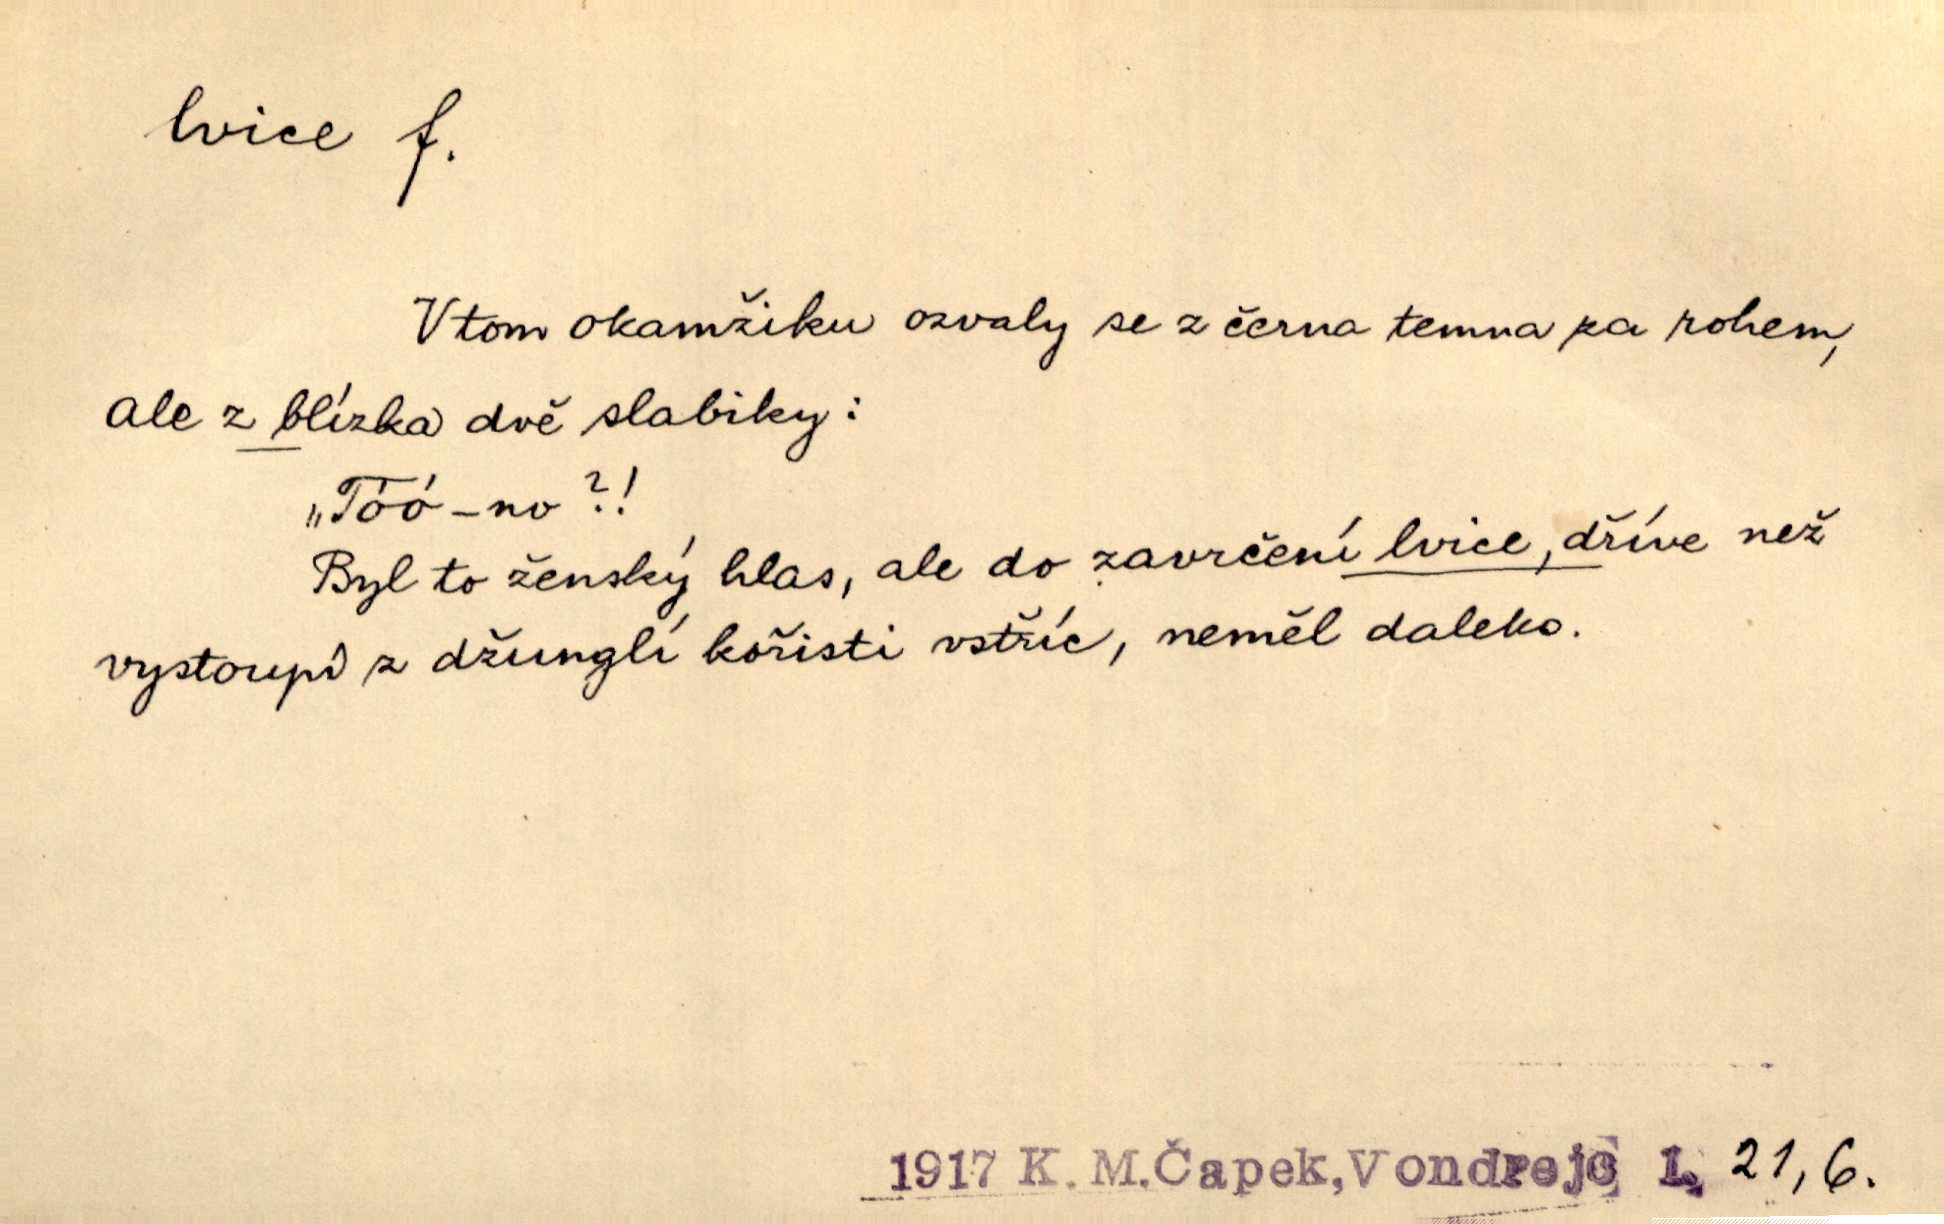 lvice f.
V tom okamžiku ozvaly se z černa temna za rohem,
ale z blízka dvě slabiky:
„Tóó-no?!
Byl to ženský hlas, ale do zavrčení lvice, dříve než
vystoupí z džunglí kořisti vstříc, neměl daleko.
1917 K. M. Čapek, Vondrejc I, 21, 6.